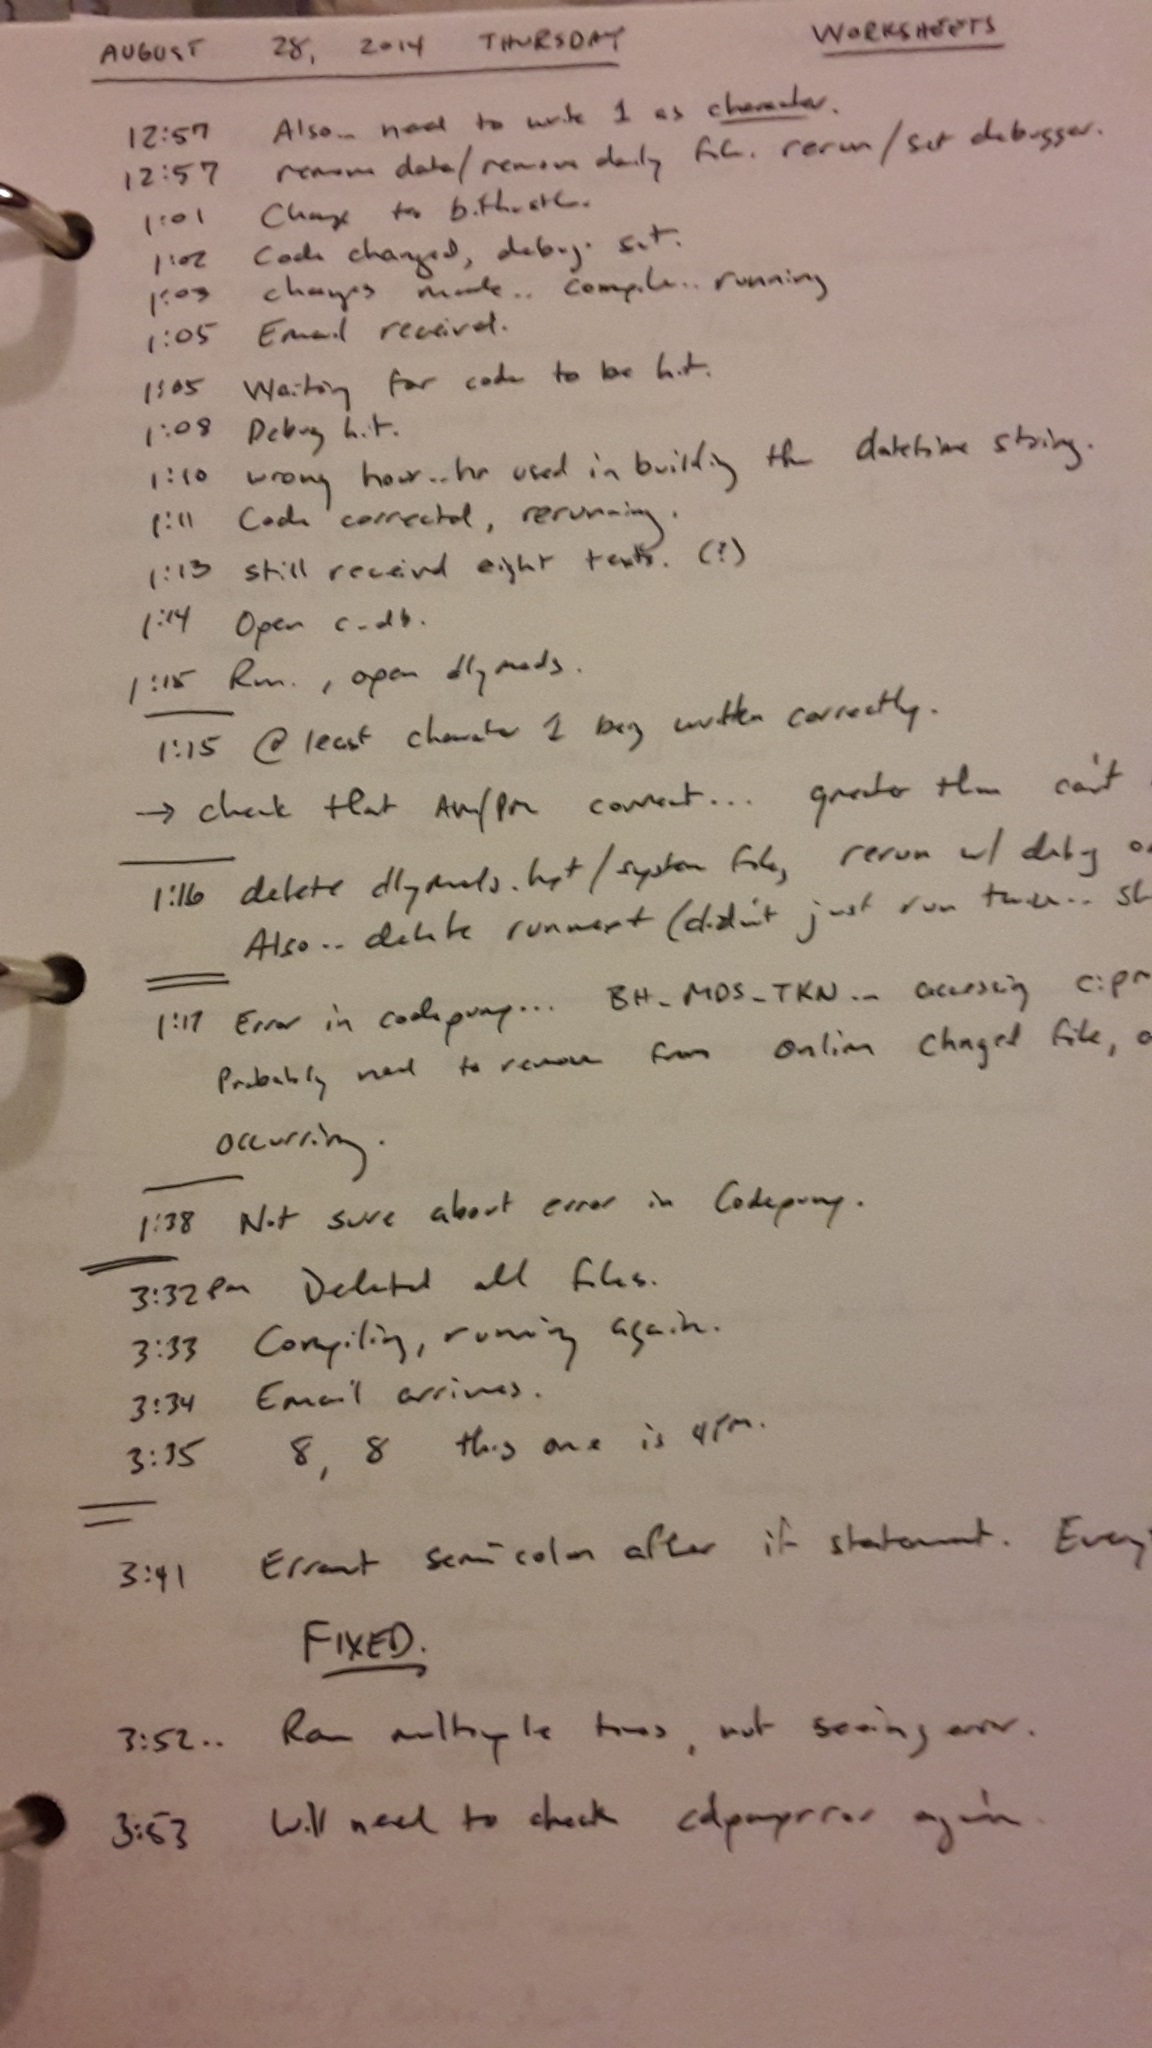 AUGUST 28, 2014 THURSDAY WORKSHEETS
12:57 Also.. need to write 1 as character.
12:57 remove data/remove daily file. rerun/set debugger.
1:01 Change to
1:02 Code changed, debug. set.
1:03 changes made.. compile.. running
1:05 Email received.
1:05 Waiting for code to be hit.
1:08 Debug hit.
1:10 wrong hour..hr used in building the datetime string.
1:11 Code corrected, rerunning.
1:13 still received eight texts. (?)
1:14 Open c-db.
1:15 Run., open dlymods.
1:15 @ least character 1 being written correctly.
→ check that AM/PM correct... greater than can't
1:16 delete dlymods. /system file, rerun w/ debug
Also.. delete runnext (didn't just run twice..
1:17 Error in codepump... BH_MDS_TKN... accessing
Probably need to remove from online changed file,
occurring.
1:38 Not sure about error in Codepump.
3:32 PM Deleted all files.
3:33 Compiling, running again.
3:34 Email arrives.
3:35 8, 8 this one is 4PM.
3:41 Errant semicolon after if statement.
FIXED.
3:52.. Ran multiple times, not seeing error.
3:53 Will need to check again.